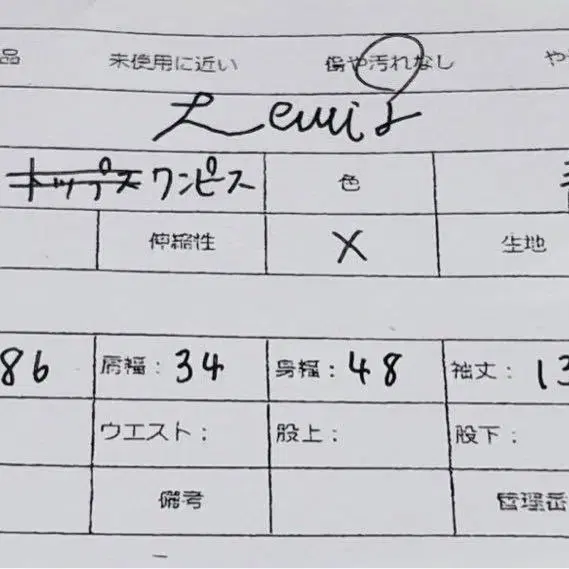 品 未使用に近い 傷や汚れなし や
Lewis
トップス ワンピース 色
伸縮性 X 生地
86 肩幅: 34 身幅: 48 袖丈: 13
ウエスト: 股上: 股下:
備考 管理番